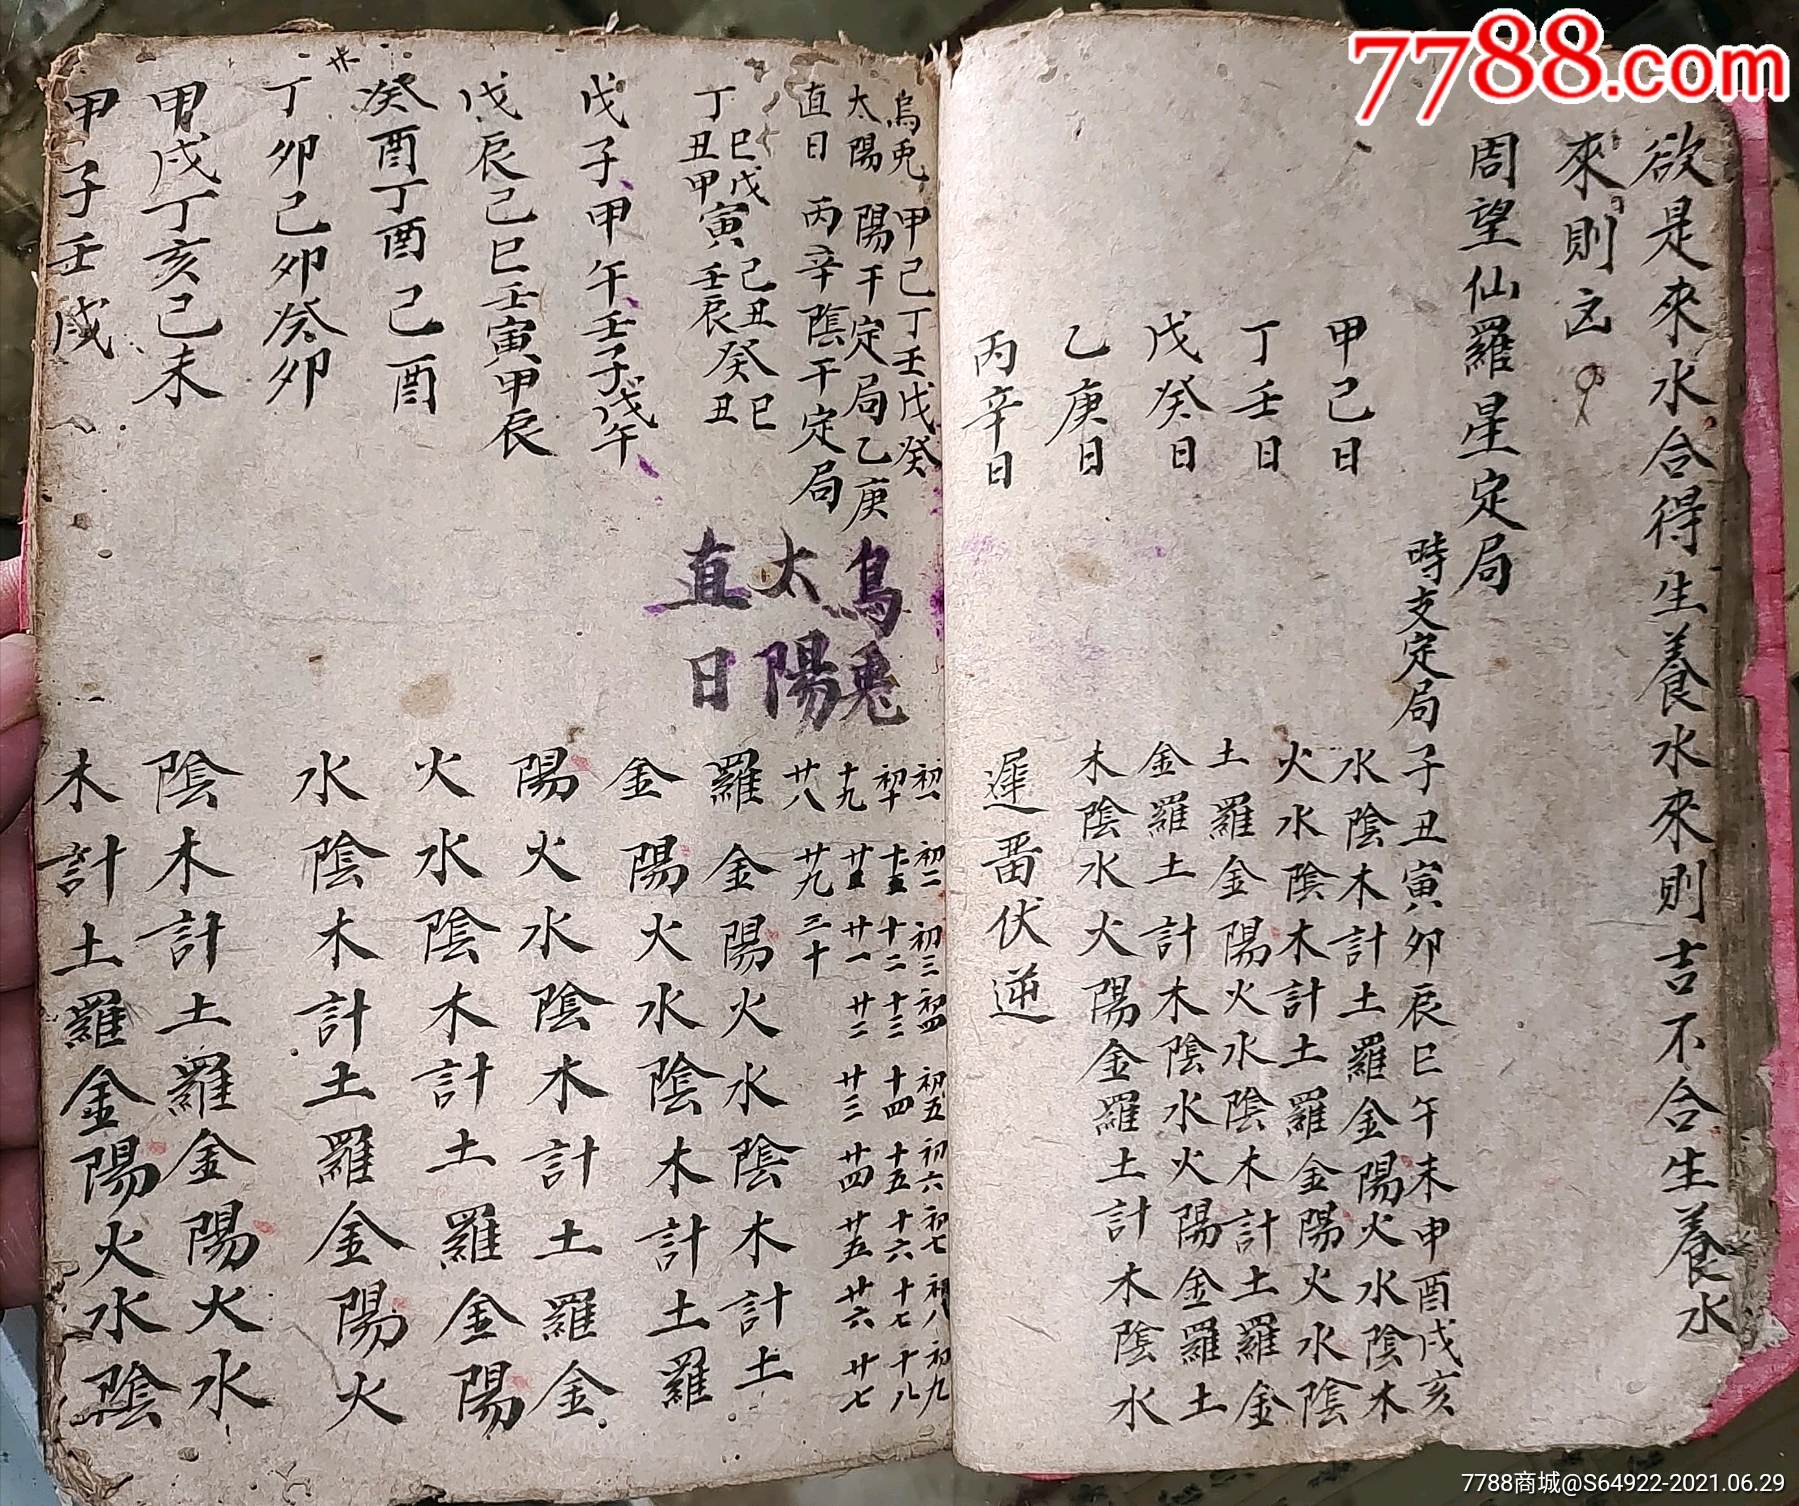 欲是來水合得生養水來則吉不合生養水
來則凶
周望仙羅星定局
時支定局 子丑寅卯辰巳午未申酉戌亥
甲己日 水陰木計土羅金陽火水陰木
丁壬日 火水陰木計土羅金陽火水陰
戊癸日 土羅金陽火水陰木計土羅金
乙庚日 金羅土計木陰水火陽金羅土
丙辛日 木陰水火陽金羅土計木陰水
遲畨伏逆
烏兎 甲己丁壬戊癸
太陽 陽干定局乙庚
直日 丙辛陰干定局
烏兎
太陽
直日
初一 初二 初三 初四 初五 初六 初七 初八 初九
初十 十二 十三 十四 十五 十六 十七 十八
十九 廿一 廿二 廿三 廿四 廿五 廿六 廿七
廿八 廿九 三十
丁丑甲寅壬辰癸丑
羅金陽火水陰木計土
戊子甲午壬子戊午 金陽火水陰木計土羅
戊辰己巳壬寅甲辰 陽火水陰木計土羅金
癸酉丁酉己酉 火水陰木計土羅金陽
丁卯己卯癸卯 水陰木計土羅金陽火
甲戌丁亥己未 陰木計土羅金陽火水
甲子壬戌 木計土羅金陽火水陰
7788.com
7788商城@S64922-2021.06.29